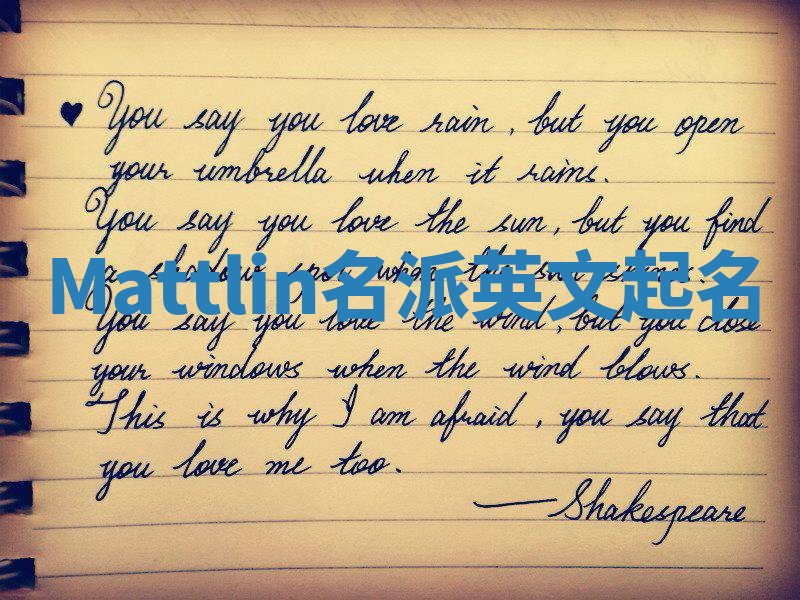 ♥ You say you love rain, but you open
your umbrella when it rains.
You say you love the sun, but you find
a shadow spot when the sun shines.
Mattlin名派英文起名
You say you love the wind, but you close
your windows when the wind blows.
This is why I am afraid, you say that
you love me too.
—Shakespeare